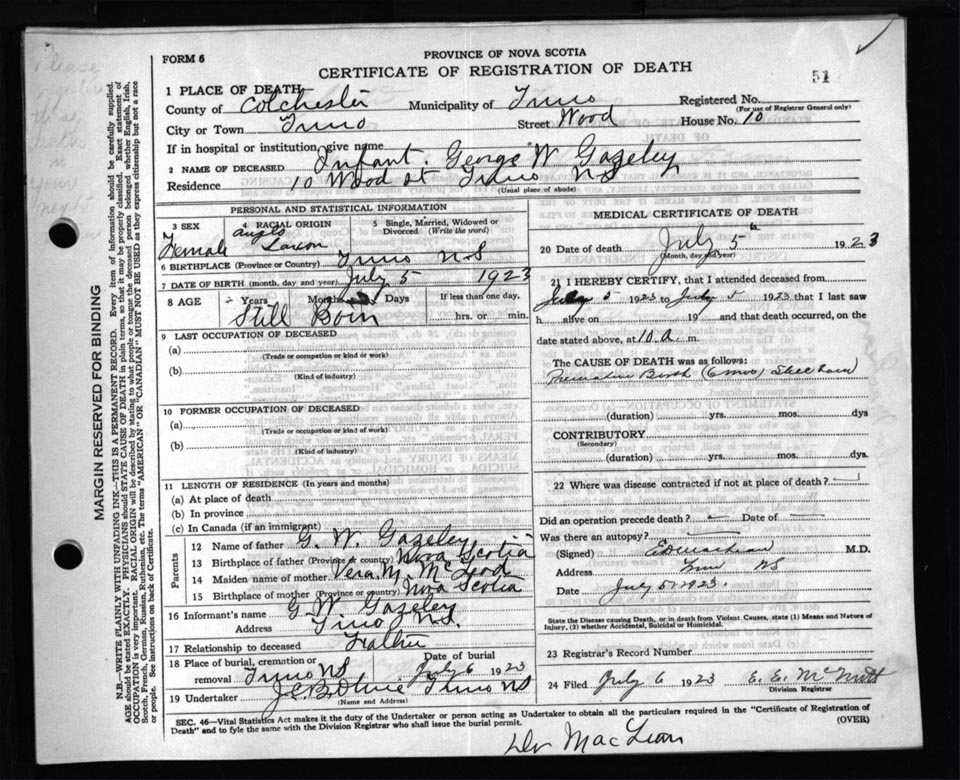 FORM 6
PROVINCE OF NOVA SCOTIA
CERTIFICATE OF REGISTRATION OF DEATH
51
1 PLACE OF DEATH
County of Colchester Municipality of Truro Registered No.
(For use of Registrar General only)
City or Town Truro Street Wood House No. 10
If in hospital or institution, give name
2 NAME OF DECEASED Infant. George W Gazeley
Residence 10 Wood St Truro NS
(Usual place of abode)
PERSONAL AND STATISTICAL INFORMATION
3 SEX 4 RACIAL ORIGIN 5 Single, Married, Widowed or Divorced (Write the word)
Female Anglo Saxon
6 BIRTHPLACE (Province or Country) Truro NS
7 DATE OF BIRTH (month, day, and year) July 5 1923
8 AGE Years Months Days If less than one day,
Still Born hrs. or min.
9 LAST OCCUPATION OF DECEASED
(a)
(Trade or occupation or kind or work)
(b)
(Kind of industry)
10 FORMER OCCUPATION OF DECEASED
(a)
(Trade or occupation or kind or work)
(b)
(Kind of industry)
11 LENGTH OF RESIDENCE (In years and months)
(a) At place of death
(b) In province
(c) In Canada (if an immigrant)
Parents
12 Name of father G. W. Gazeley
13 Birthplace of father (Province or country) Nova Scotia
14 Maiden name of mother Vera M. McLeod
15 Birthplace of mother (Province or country) Nova Scotia
16 Informant's name G W Gazeley
Address Truro NS.
17 Relationship to deceased Father
18 Place of burial, cremation or removal Truro NS Date of burial July 6 1923
19 Undertaker Truro NS
(Name and Address)
MEDICAL CERTIFICATE OF DEATH
20 Date of death July 5th 1923
(Month, day and year)
21 I HEREBY CERTIFY, that I attended deceased from
July 5 1923 to July 5 1923 that I last saw
h alive on 19 and that death occurred, on the
date stated above, at 10 a. m.
The CAUSE OF DEATH was as follows:
Premature Birth (6 mos) Stillborn
(duration) yrs. mos. dys
CONTRIBUTORY
(Secondary)
(duration) yrs. mos. dys.
22 Where was disease contracted if not at place of death?
Did an operation precede death? Date of
Was there an autopsy?
(Signed) M.D.
Address Truro NS
Date July 5 1923.
State the Disease causing Death, or in death from Violent Causes, state (1) Means and Nature of Injury, (2) whether Accidental, Suicidal or Homicidal.
23 Registrar's Record Number
24 Filed July 6 1923 E. E. McNutt
Division Registrar
SEC. 46—Vital Statistics Act makes it the duty of the Undertaker or person acting as Undertaker to obtain all the particulars required in the "Certificate of Registration of
Death" and to fyle the same with the Division Registrar who shall issue the burial permit. (OVER)
Dr MacLean
MARGIN RESERVED FOR BINDING
N.B.—WRITE PLAINLY WITH UNFADING INK—THIS IS A PERMANENT RECORD. Every item of information should be carefully supplied.
AGE should be stated EXACTLY. PHYSICIANS should STATE CAUSE OF DEATH in plain terms, so that it may be properly classified. Exact statement of
OCCUPATION is very important. RACIAL ORIGIN will be described by stating to what people or tongue the deceased person belonged whether English, Irish,
Scotch, French, German, Russian, Ruthenian, etc. The terms "AMERICAN" OR "CANADIAN" MUST NOT BE USED as they express citizenship but not a race
or people. See instructions on back of Certificate.